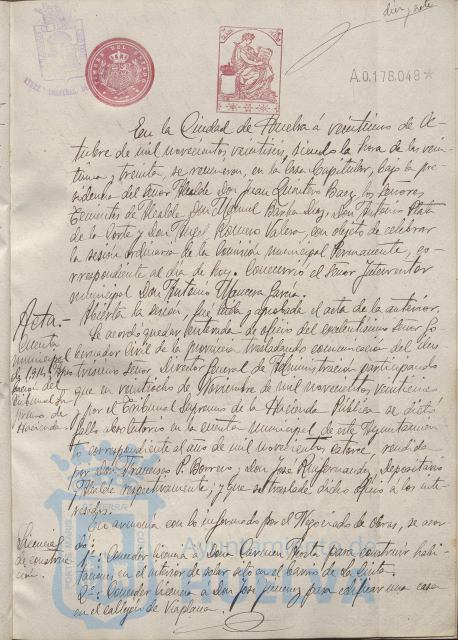 diez y siete
A.0.178.048*
En la Ciudad de Huelva á veintiuno de Oc-
tubre de mil novecientos veintiseis, siendo la hora de las vein-
tiuna y treinta, se reunieron, en la Casa Capitular, bajo la pre-
sidencia del Señor Alcalde Don Juan Quintero Baez, los Señores
Tenientes de Alcalde Don Manuel Barba Diaz, Don Antonio Plata
de la Corte y Don Angel Romero Valera, con objeto de celebrar
la sesión ordinaria de la Comisión municipal Permanente, co-
rrespondiente al día de hoy. Concurrió el Señor Interventor
municipal Don Antonio Manzera Garcia.
Abierta la sesión, fué leida y aprobada el acta de la anterior.
Acta.-
Cuenta
municipal
de 1914
del
Tribunal Su-
premo de
Hacienda.
Se acordó quedar enterada de oficio del excelentísimo Señor Go-
bernador Civil de la provincia trasladando comunicación del ilus-
trísimo Señor Director General de Administración participando
que en veintiocho de Noviembre de mil novecientos veinticinco
y por el Tribunal Supremo de la Hacienda Pública se dictó
fallo absolutorio en la cuenta municipal de este Ayuntamien-
to correspondiente al año de mil novecientos catorce, rendida
por Don Francisco P. Borrero y Don José depositario
y Alcalde respectivamente; y que se traslade dicho oficio á los inte-
resados.
Licencia
de construc-
ción.
En armonía con lo informado por el Negociado de obras, se acor-
dó:
1º: Conceder licencia á Don Carmen para construir habi-
taciones en el interior de solar sito en el barrio de la Cinta.
2º: Conceder licencia á Don José Jimenez para edificar una casa
en el callejón de Viaplana.
Ayuntamiento de
HUELVA